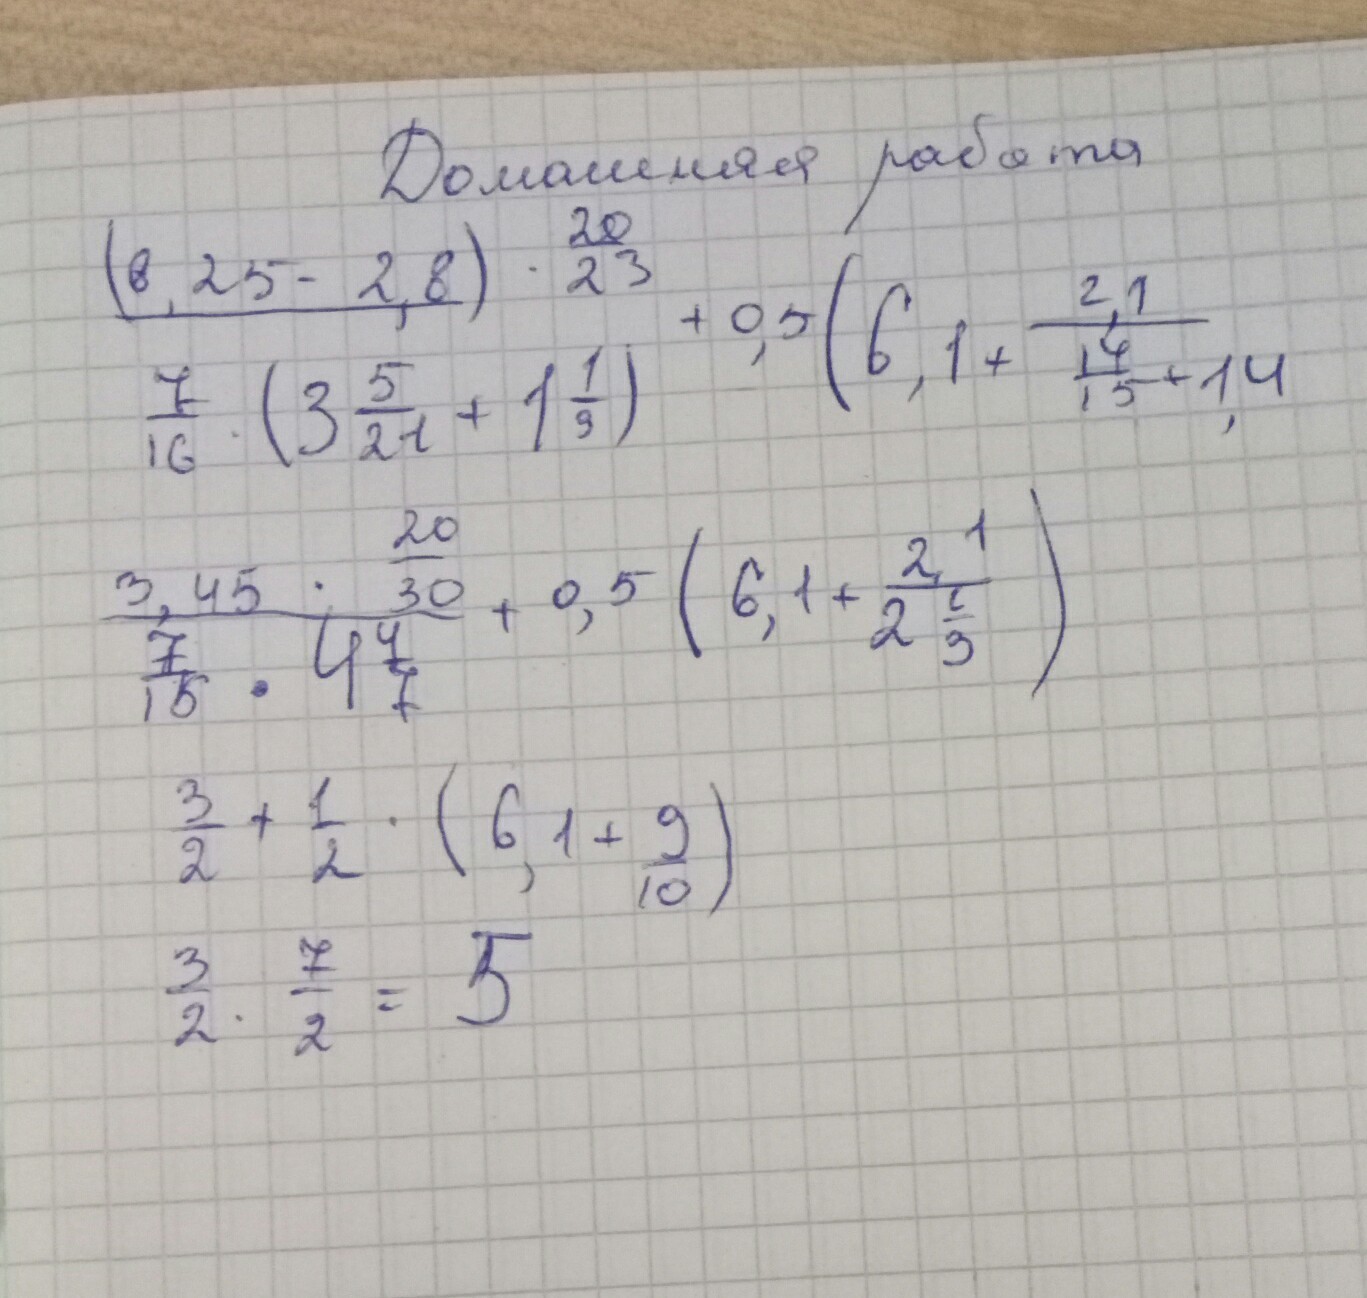 Домашняя работа
(6,25 - 2,8) · 20/23 / 7/16 · (3 5/21 + 1 1/3) + 0,5 (6,1 + 2,1 / 14/15 + 1,4
3,45 · 20/30 / 7/15 · 4 4/7 + 0,5 (6,1 + 2,1 / 2 1/3)
3/2 + 1/2 · (6,1 + 9/10)
3/2 · 7/2 = 5